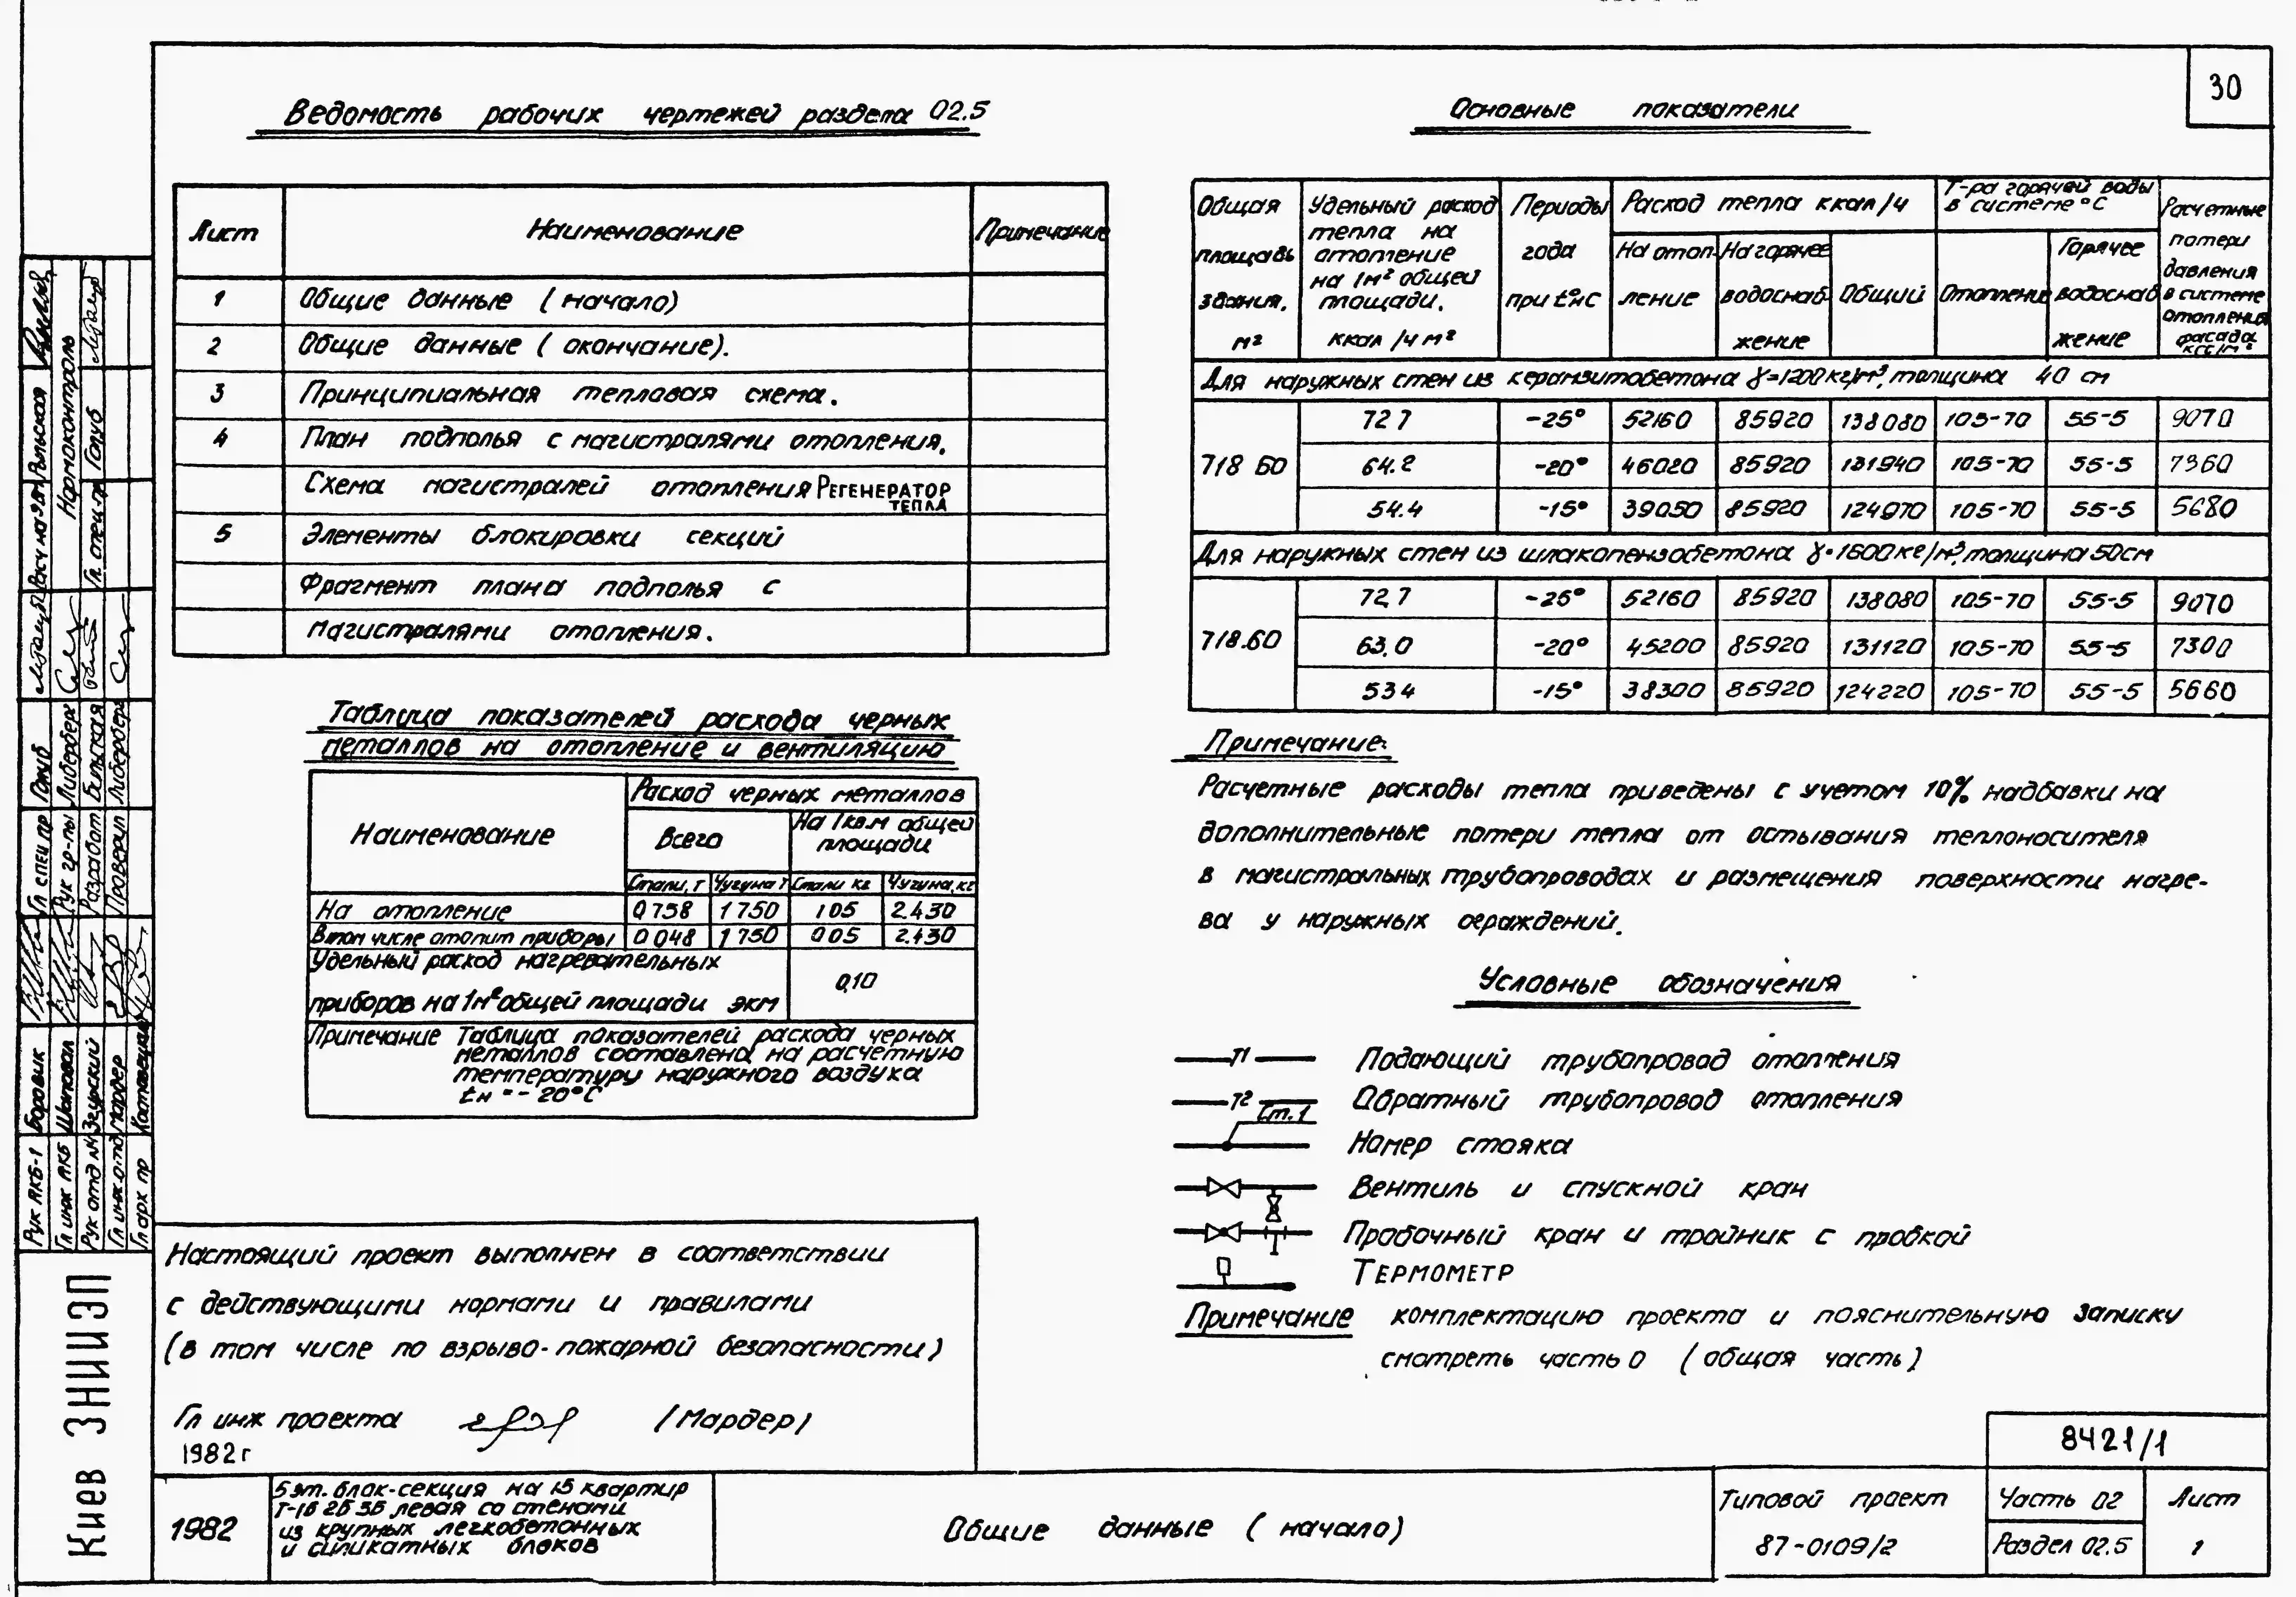 30
Ведомость рабочих чертежей раздела 02.5
Лист Наименование Примечание
1 Общие данные (начало)
2 Общие данные (окончание).
3 Принципиальная тепловая схема.
4 План подполья с магистралями отопления.
Схема магистралей отопления РЕГЕНЕРАТОР
ТЕПЛА
5 Элементы блокировки секций
Фрагмент плана подполья с
магистралями отопления.
Таблица показателей расхода черных
металлов на отопление и вентиляцию
Наименование
Расход черных металлов
Всего
На 1 кв.м общей
площади
Стали, т Чугуна т Стали кг Чугуна, кг
На отопление 0 758 1 750 1 05 2.430
В том числе отопит приборы 0 048 1 750 0 05 2.430
Удельный расход нагревательных
приборов на 1м² общей площади экм
0,10
Примечание Таблица показателей расхода черных
металлов составлена на расчетную
температуру наружного воздуха
tн = - 20°С
Настоящий проект выполнен в соответствии
с действующими нормами и правилами
(в том числе по взрыво-пожарной безопасности)
Гл инж проекта (Мардер)
1982г
Основные показатели
Общая
площадь
здания,
м²
Удельный расход
тепла на
отопление
на 1м² общей
площади.
ккал /ч м²
Периоды
года
при t°нС
Расход тепла ккал/ч
На отоп-
ление
На горячее
водоснаб-
жение
Общий
Т-ра горячей воды
в системе °С
Отопление
Горячее
водоснаб
жение
Расчетные
потери
давления
в системе
отопления
фасада
кгс/м²
Для наружных стен из керамзитобетона γ=1200кг/м³, толщина 40 см
718 60
72 7 -25° 52160 85920 138080 105-70 55-5 9070
64.2 -20° 46020 85920 131940 105-70 55-5 7360
54.4 -15° 39050 85920 124970 105-70 55-5 5680
Для наружных стен из шлакопензобетона γ=1600кг/м³, толщина 50см
718.60
72,7 -25° 52160 85920 138080 105-70 55-5 9070
63.0 -20° 45200 85920 131120 105-70 55-5 7300
53 4 -15° 38300 85920 124220 105-70 55-5 5660
Примечание:
Расчетные расходы тепла приведены с учетом 10% надбавки на
дополнительные потери тепла от остывания теплоносителя
в магистральных трубопроводах и размещения поверхности нагре-
ва у наружных ограждений.
Условные обозначения
Т1 Подающий трубопровод отопления
Т2 Обратный трубопровод отопления
Ст.1
Номер стояка
Вентиль и спускной кран
Пробочный кран и тройник с пробкой
ТЕРМОМЕТР
Примечание комплектацию проекта и пояснительную записку
смотреть часть 0 (общая часть)
8421/1
1982
5 эт. блок-секция на 15 квартир
Т-1Б 2Б 3Б левая со стенами
из крупных легкобетонных
и силикатных блоков
Общие данные (начало)
Типовой проект
87-0109/2
Часть 02
Раздел 02.5
Лист
1
Киев ЗНИИЭП
Рук АКБ-1 Боровик
Гл инж АКБ Шаповал
Рук отд №3 Згурский
Гл инж отд Мардер
Гл арх пр
Гл спец пр Голуб
Рук гр-пы Либерберг
Разработ Бильская
Проверил Либерберг
Нормоконтроль
Гл спец Голуб